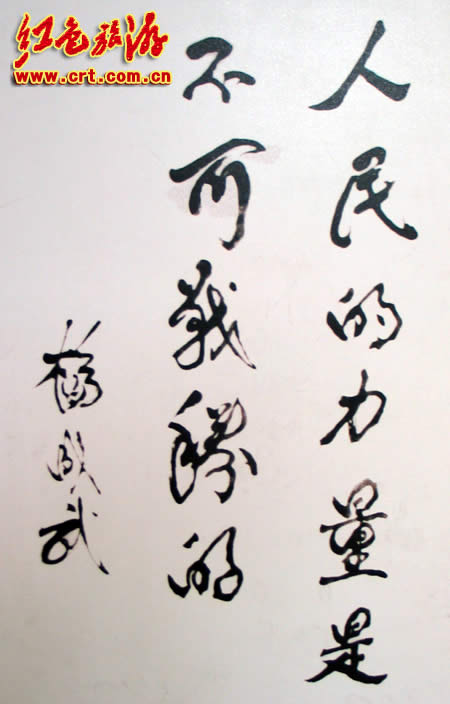 红色旅游
www.crt.com.cn
人民的力量是
不可战胜的
杨成武